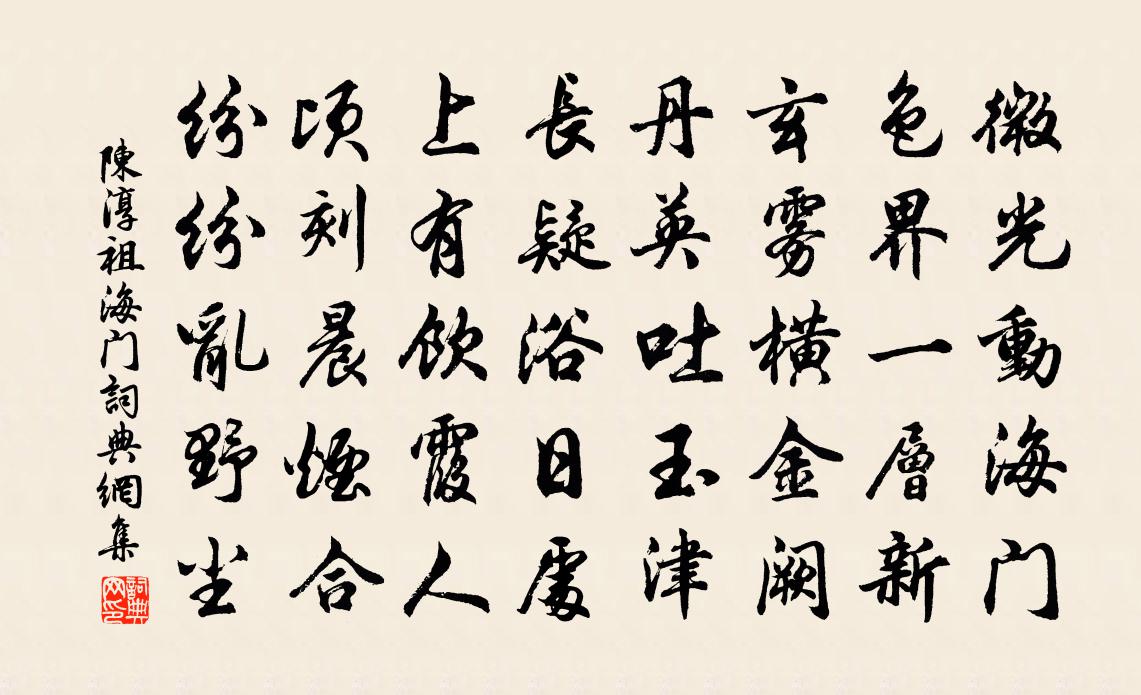 微光動海门
色界一層新
玄雾橫金阙
丹英吐玉津
長疑浴日處
上有飲霞人
頃刻晨煙合
纷纷亂野尘
陳淳祖海门詞典網集